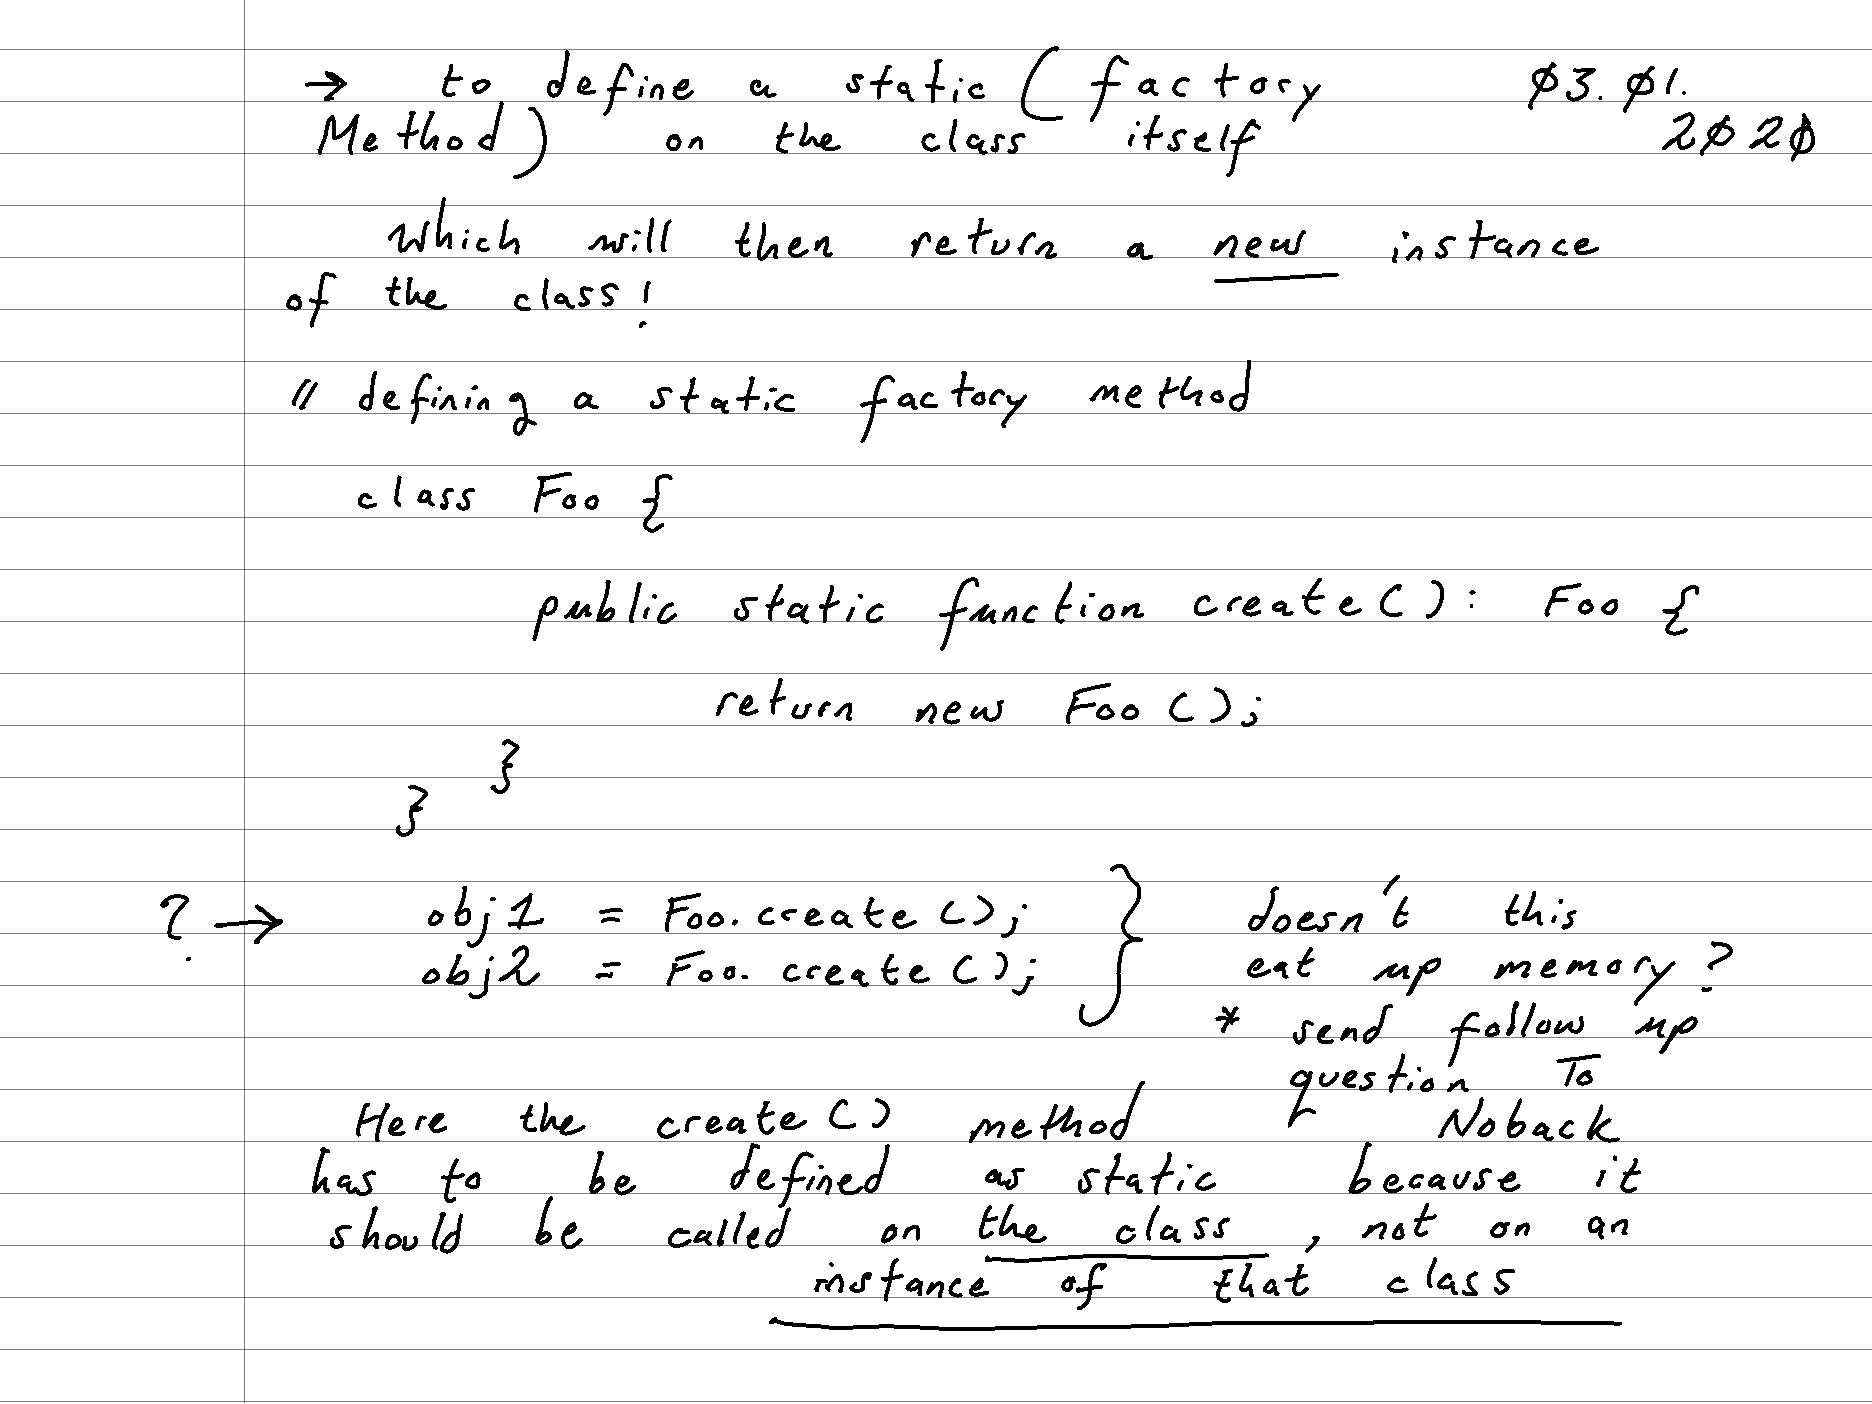 → to define a static (factory ø3.ø1.
Method) on the class itself 2ø2ø
which will then return a new instance
of the class!
// defining a static factory method
class Foo {
public static function create(): Foo {
return new Foo();
}
}
? → obj1 = Foo.create(); } doesn't this
obj2 = Foo.create(); eat up memory?
* send follow up
question To
Here the create() method Noback
has to be defined as static because it
should be called on the class, not on an
instance of that class